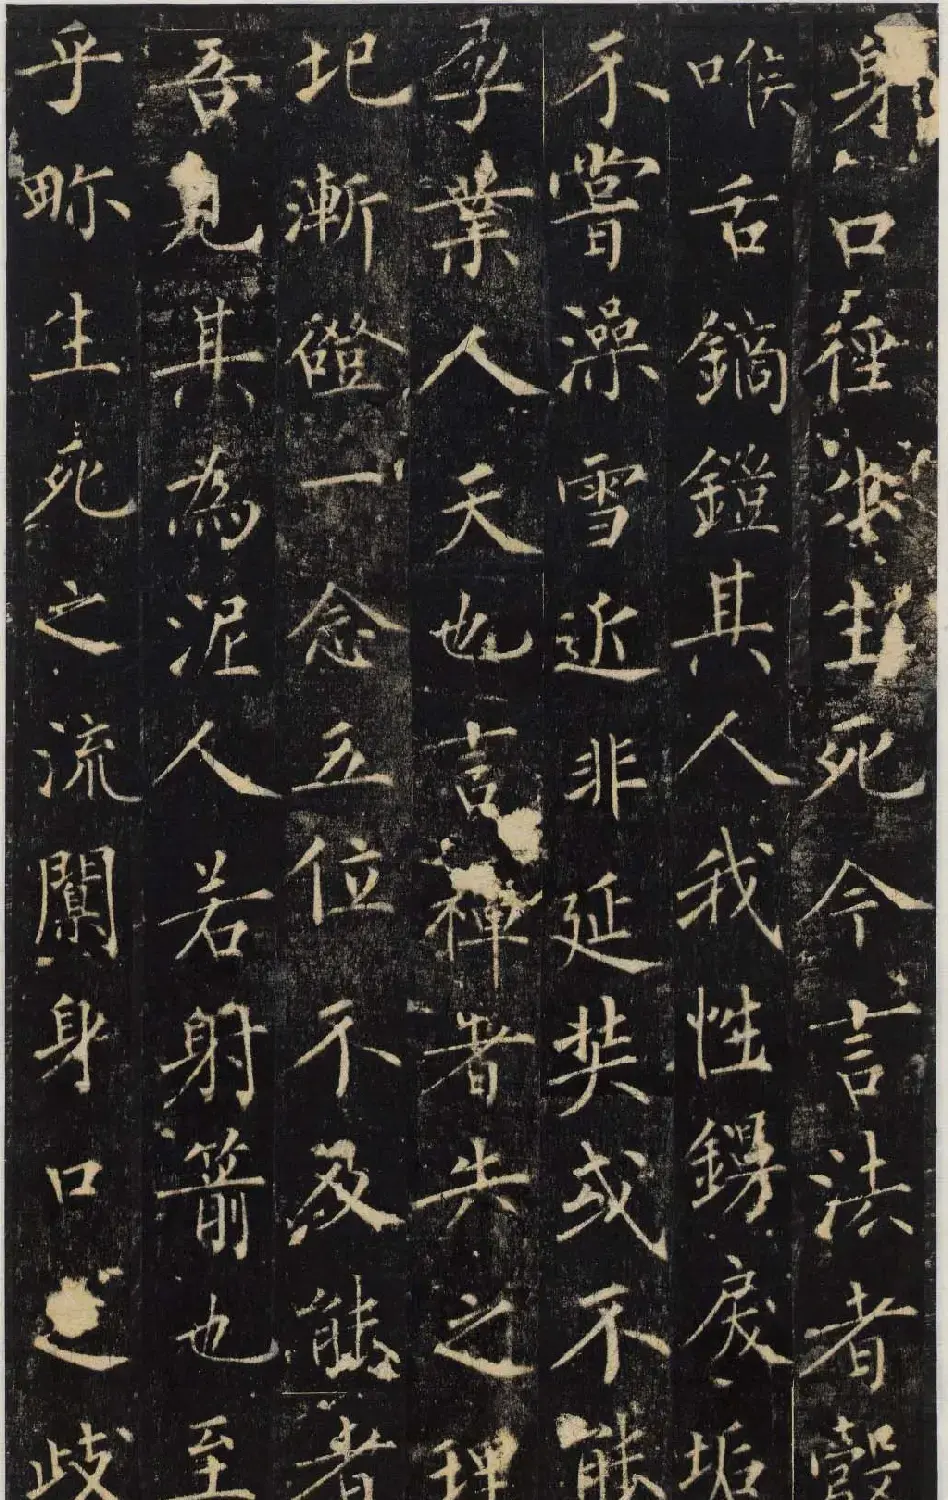 身口徑塗生死今言法者㲉
喉舌鏑鎧其人我性鎊戾垢
不嘗澡雪近非延奘或不能
尋業人天也言禪者失之理
圮漸磴一念五位不及能者
吾見其為泥人若射箭也至
乎畛生死之流闤身口之歧